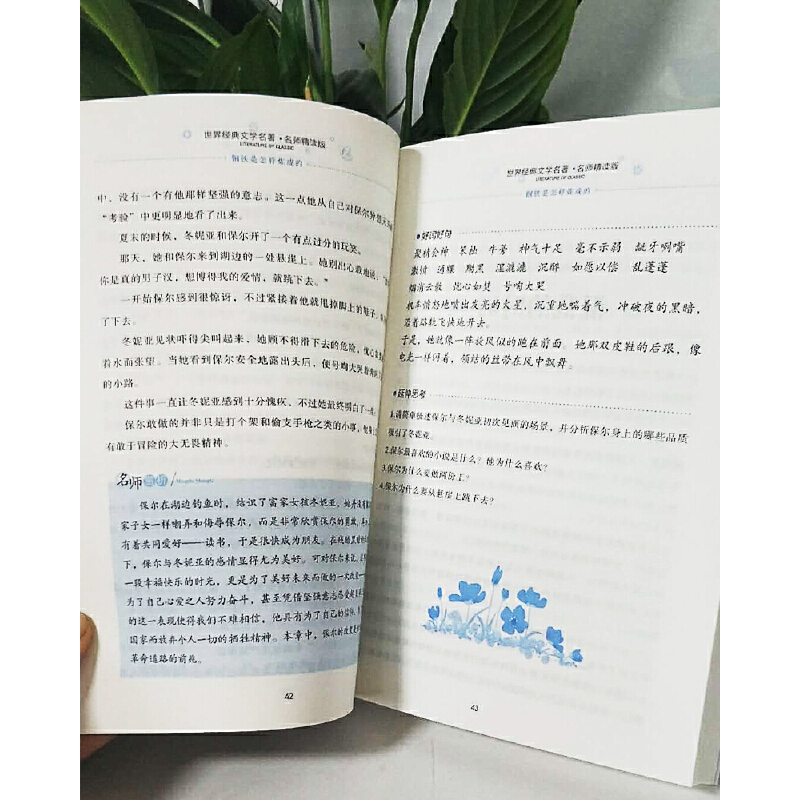 世界经典文学名著·名师精读版
LITERATURE OF CLASSIC
钢铁是怎样炼成的
中，没有一个有他那样坚强的意志。这一点她从自己对保尔
“考验”中更明显地看了出来。
夏末的时候，冬妮亚和保尔开了一个有点过分的玩笑。
那天，她和保尔来到湖边的一处悬崖上。她别出心裁地说：
你是真的男子汉，想博得我的爱情，就跳下去。”
一开始保尔感到很惊讶，不过紧接着他就甩掉脚上的鞋子，
了下去。
冬妮亚见状吓得尖叫起来，她顾不得滑下去的危险，忧心
着水面张望。当她看到保尔安全地露出头后，便号啕大哭着
的小路。
这件事一直让冬妮亚感到十分愧疚，不过她最终明白了一
保尔敢做的并非只是打个架和偷支手枪之类的小事，他
有敢于冒险的大无畏精神。
名师赏析
保尔在湖边钓鱼时，结识了富家女孩冬妮亚，她并没有
家子女一样嘲弄和侮辱保尔，而是非常欣赏保尔的勇敢，
有着共同爱好——读书，于是很快成为朋友。在残酷黑暗的
下，保尔与冬妮亚的感情显得尤为美好。可对保尔来说，
一段幸福快乐的时光，更是为了美好未来而做的一次
为了自己心爱之人努力奋斗，甚至凭借坚强意志忍受
的这一表现使得我们不难相信，他具有为了自己的信仰、
国家而放弃个人一切的牺牲精神。本章中，保尔的
革命道路的前兆。
42
世界经典文学名著·名师精读版
LITERATURE OF CLASSIC
钢铁是怎样炼成的
好词好句
聚精会神 笨拙 牛虻 神气十足 毫不示弱 龇牙咧嘴
激愤 黝黑 湿漉漉 沉醉 如愿以偿 乱蓬蓬
烟消云散 忧心如焚 号啕大哭
机车愤怒地喷出发亮的火星，沉重地喘着气，冲破夜的黑暗，
沿着路轨飞快地开去。
于是，她就像一阵旋风似的跑在前面。她那双皮鞋的后跟，像
电光一样闪着，颈结的丝带在风中飘舞。
延伸思考
1.请简单叙述保尔与冬妮亚初次见面的场景，并分析保尔身上的哪些品质
吸引了冬妮亚。
2.保尔最喜欢的小说是什么？他为什么喜欢？
3.保尔为什么要做两份工？
4.保尔为什么要从悬崖上跳下去？
43